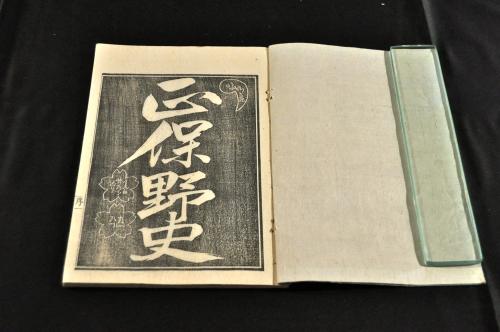 正保野史
序